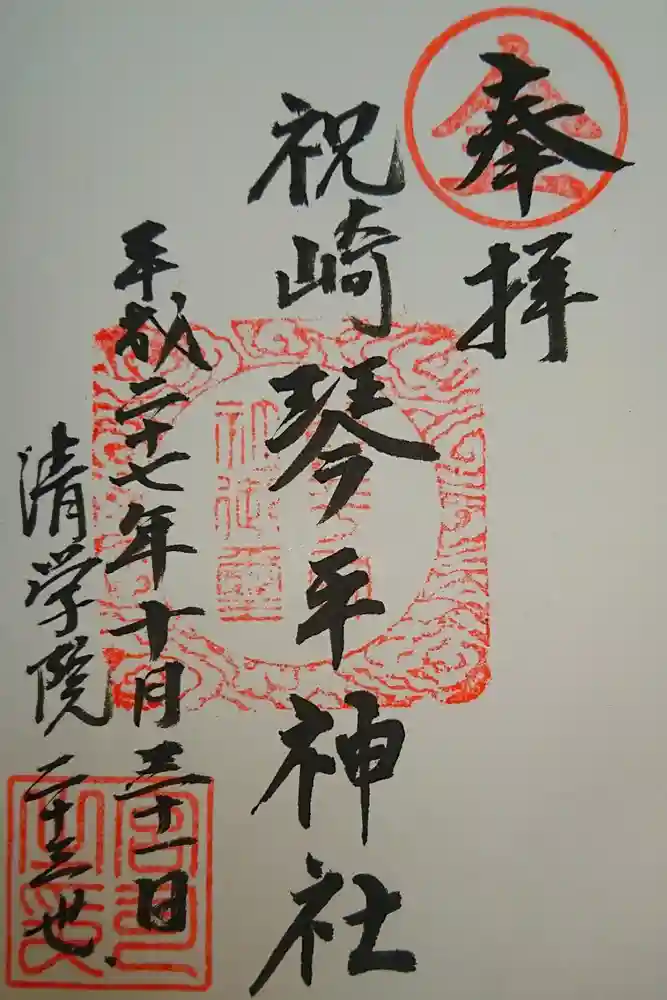 奉拝
祝崎琴平神社
平成二十七年十月三十一日
清学院二十三世